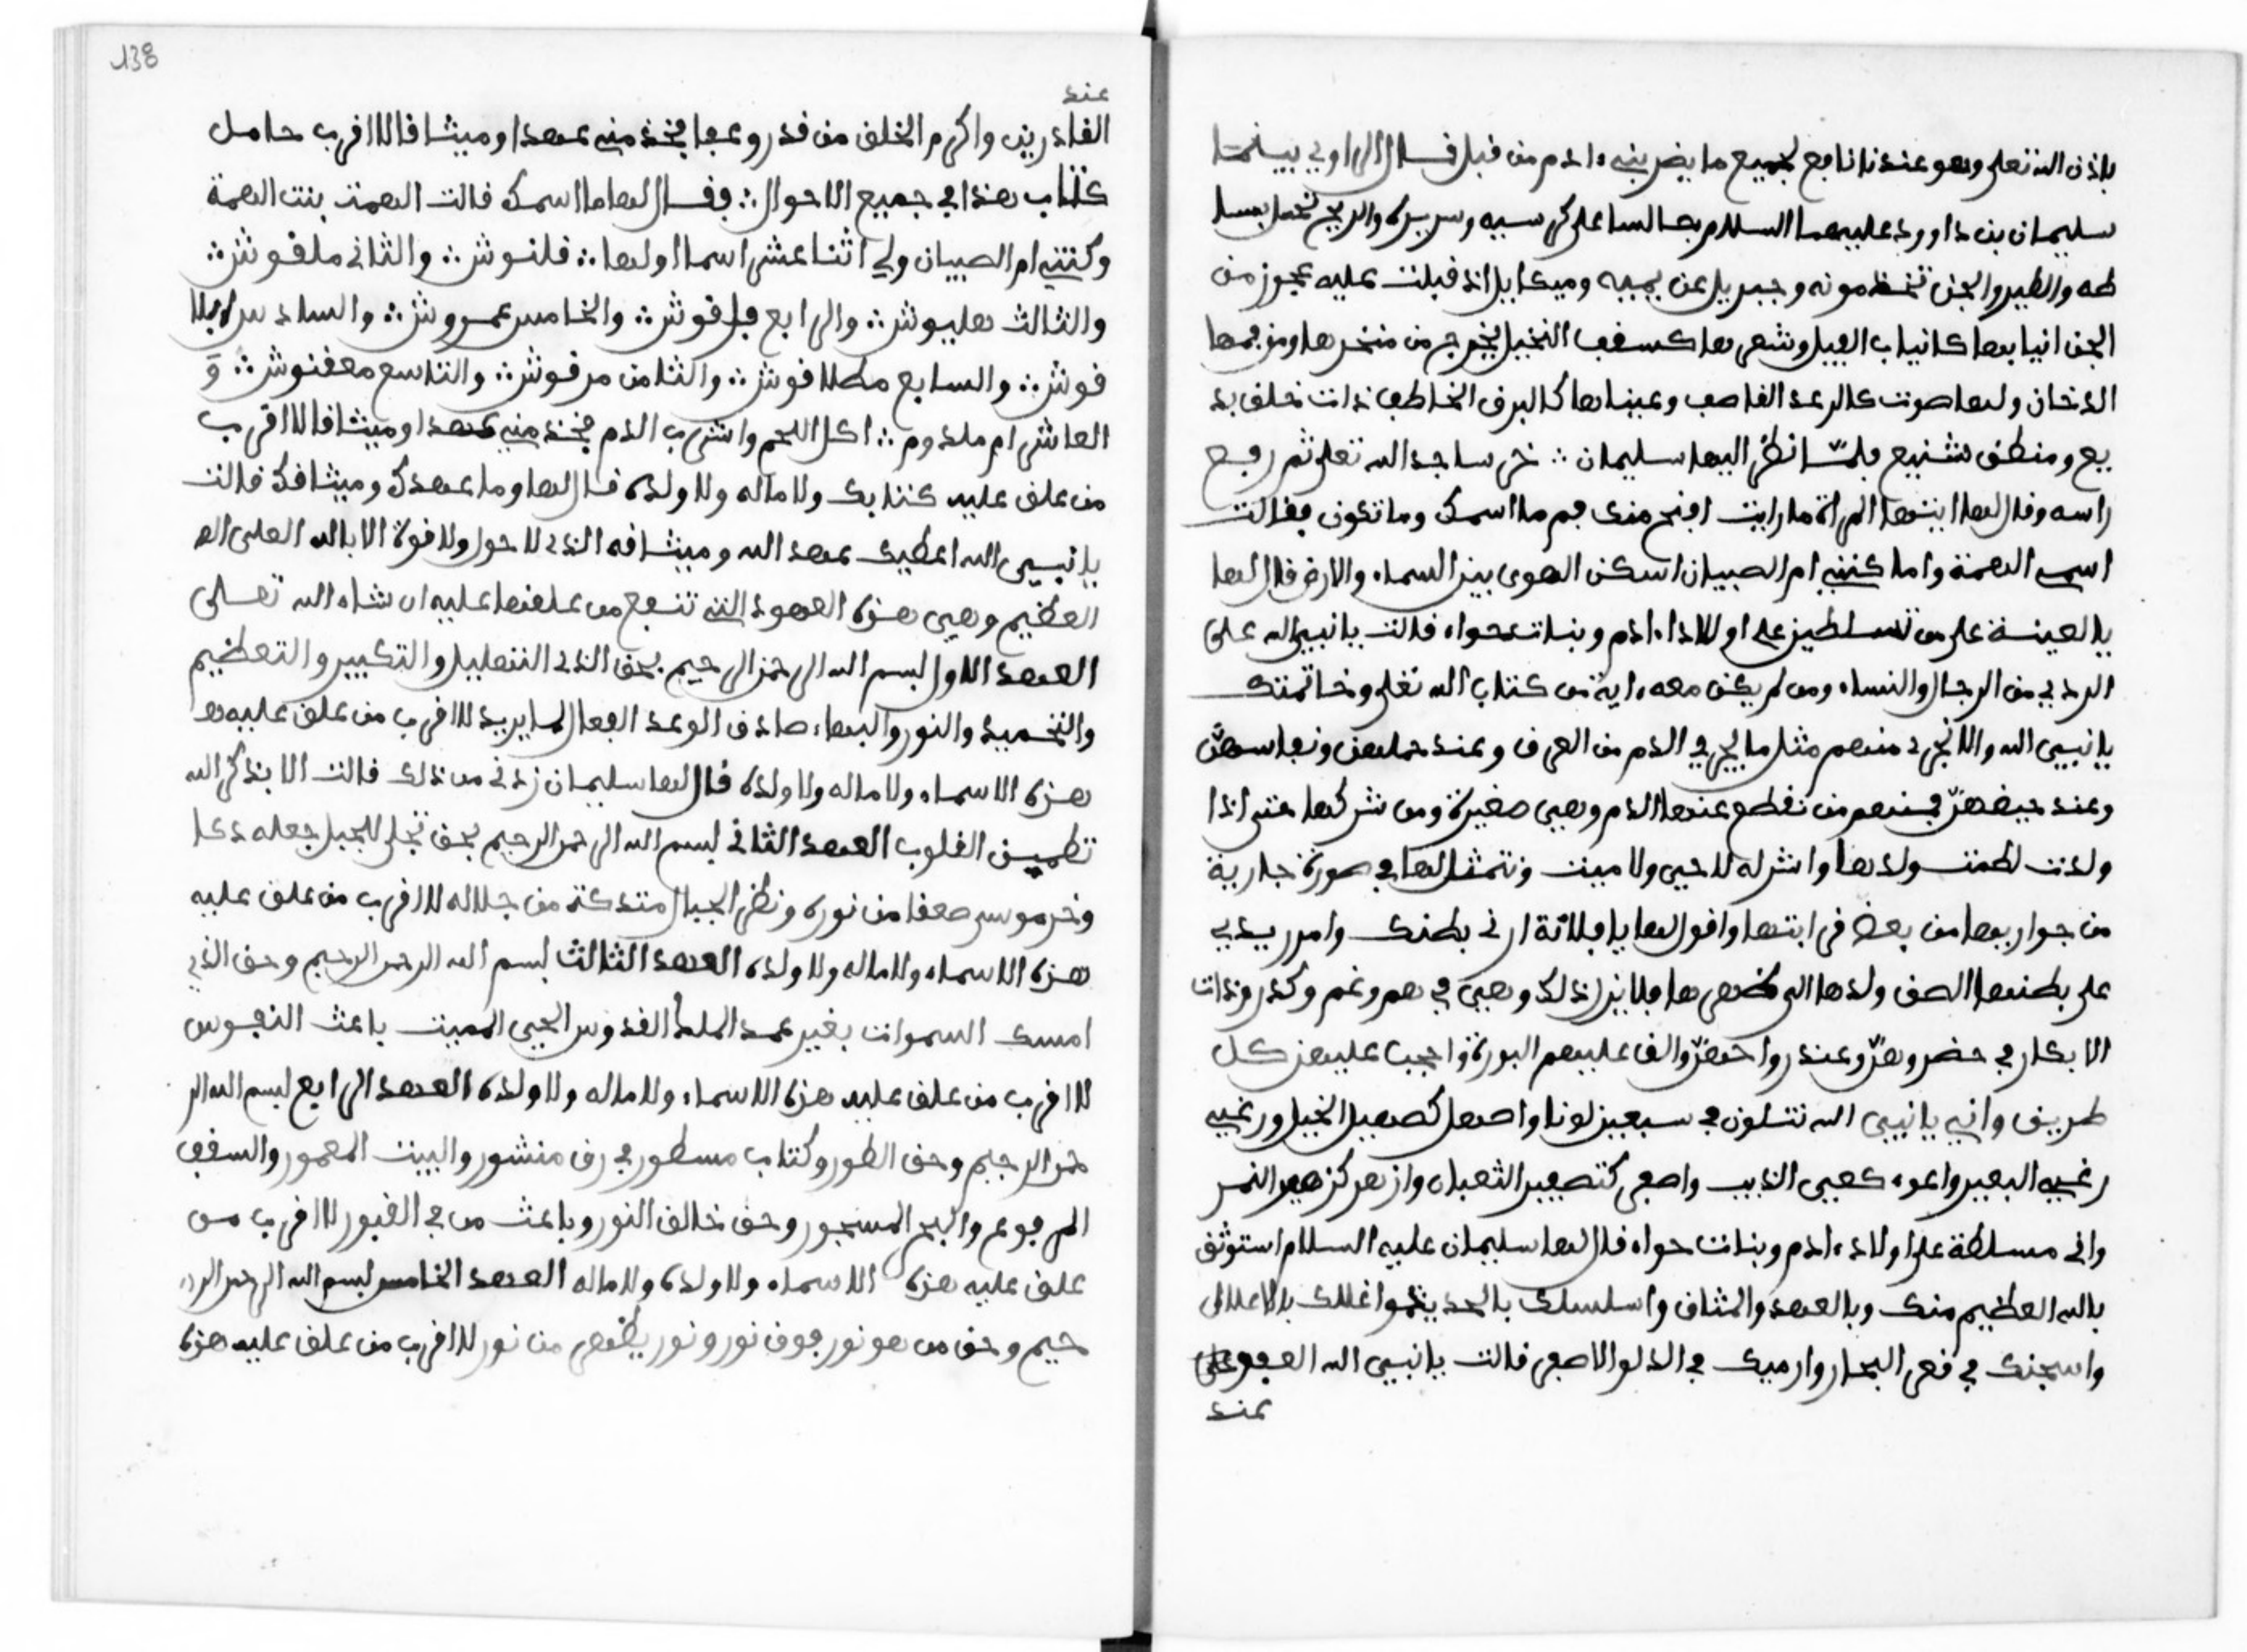 باذن الله تعلى وهو عندنا نافع لجميع ما يضر بنيء ادم من قبل قــال الراوي بينما
سليمان بن داوود عليهما السلام جالسا على كرسيه وسريره والريح تحمل بسا
طه والطير والجن تخدمونه وجبريل عن يمينه وميكاييل اذ قبلت عليه عجوز من
الجن انيابها كانياب الفيل وشعرها كسعف النخيل يخرج من منخرها ومن فمها
الدخان ولها صوت كالرعد القاصف وعيناها كالبرق الخاطف ذات خلف بد
يع ومنطق شنيع فلمّا نظر اليها سليمان ∴ خر ساجدا لله تعلى ثم رفع
راسه وقال لها ايتها المراة ما رايت اقبح منك فم ما اسمك وما تكون فقالت
اسمي الهمة واما كنيتي ام الصبيان اسكن الهوى بين السماء والارض قال لها
يا لعينة على من تسلطين على اولاد ءادم وبنات حواء قالت يا نبي الله على
الرذيء من الرجال والنساء ومن لم يكن معه ءاية من كتاب الله تعلى وخاتمتك
يا نبيي الله والا نجرى منهم مثل ما يجري الدم من العرف وعند حملهن ونفاسهنّ
وعند حيضهنّ فمنهم من نقطع عنها الدم وهي صغيرة ومن شركها حتى اذا
ولدت لطمت ولدها واتركه لا حيى ولا ميت ونتمثل لها في صورة جارية
من جواريها من بعض قرابتها واقول لها يا فلانة ارنى بطنك وامرر يدي
على بطنها الصف ولدها الى ظهرها فلا يزل ذلك وهي في هم وغم وكدر وذات
الابكار في حضروهنّ وعند رواحهنّ والف عليهم البورة واجبب عليهن كل
طريف واني يا نبيى الله نتلون في سبعين لونا واصهل كصهيل الخيل ورغيي
رغيي البعير واعوء كعيى الذيب واصفر كتصفير الثعبان وازهر كزهير النمر
وانى مسلطة على اولاد ءادم وبنات حواء قال لها سليمان عليه السلام استوثق
بالله العظيم منك وبالعهد والمثاق واسلسلك بالحديد واغللك بالاغلال
واسجنك في قعر البحار وارميك في الدلو الاصفر قالت يا نبيى الله العفو على
عند
138
عند
القادرين واكرم الخلق من قدر وعفا فخذ منى عهدا وميثاقا لا اقرب حامل
كتاب هذا في جميع الاحوال ∴ فقـال لها ما اسمك قالت الهمت بنت الهمة
وكنتي ام الصبيان ولي اثنا عشر اسما اولها ∴ فلنوش ∴ والثانى ملقوش ∴
والثالث هليوش ∴ والرابع فلقوش ∴ والخامس عمروش ∴ والسادس ايلا
قوش ∴ والسابع مطلاقوش ∴ والثامن مرقوش ∴ والتاسع معقنوش ∴ وَ
العاشر ام ملدوم ∴ اكل اللحم واشرب الدم فخذ منى عهدا وميثاقا لا اقرب
من علق عليه كتابك ولا ماله ولا ولده قـال لها وما عهدك وميثاقك قالت
يا نبيى الله اعطيك عهد الله وميثاقه الذى لا حول ولا قوة الا بالله العلى الع
العظيم وهي هذه العهود التي تنفع من علقها عليه ان شاء الله تعــلى
العهد الاول بسم الله الرحمن الرحيم بحق الذى التهليل والتكبير والتعظيم
والتحميد والنور والبهاء صادق الوعد الفعال لما يريد لا اقرب من علق عليه ه
هذه الاسماء ولا ماله ولا ولده قال لها سليمان زدنى من ذلك قالت الا بذكر الله
تطمين القلوب العهد الثانى بسم الله الرحمن الرحيم بحق تجلى للجبل جعله دكا
وخر موسى صعقا من نوره ونظر الجبال متدكة من جلاله لا اقرب من علق عليه
هذه الاسماء ولا ماله ولا ولده العهد الثالث بسم الله الرحمن الرحيم وحق الذي
امسك السموات بغير عمد الملك القدوس الحيى المميت باعث النفوس
لا اقرب من علق عليه هذه الاسماء ولا ماله ولا ولده العهد الرابع بسم الله الر
حمن الرحيم وحق الطور وكتاب مسطور في رق منشور والبيت المعمور والسقف
المرفوع والبحر المسجور وحق خالق النور وباعث من في القبور لا اقرب من
علق عليه هذه الاسماء ولا ولده ولا ماله العهد الخامس بسم الله الرحمن الر
حيم وحق من هو نور فوق نور ونور يظهر من نور لا اقرب من علق عليه هذه